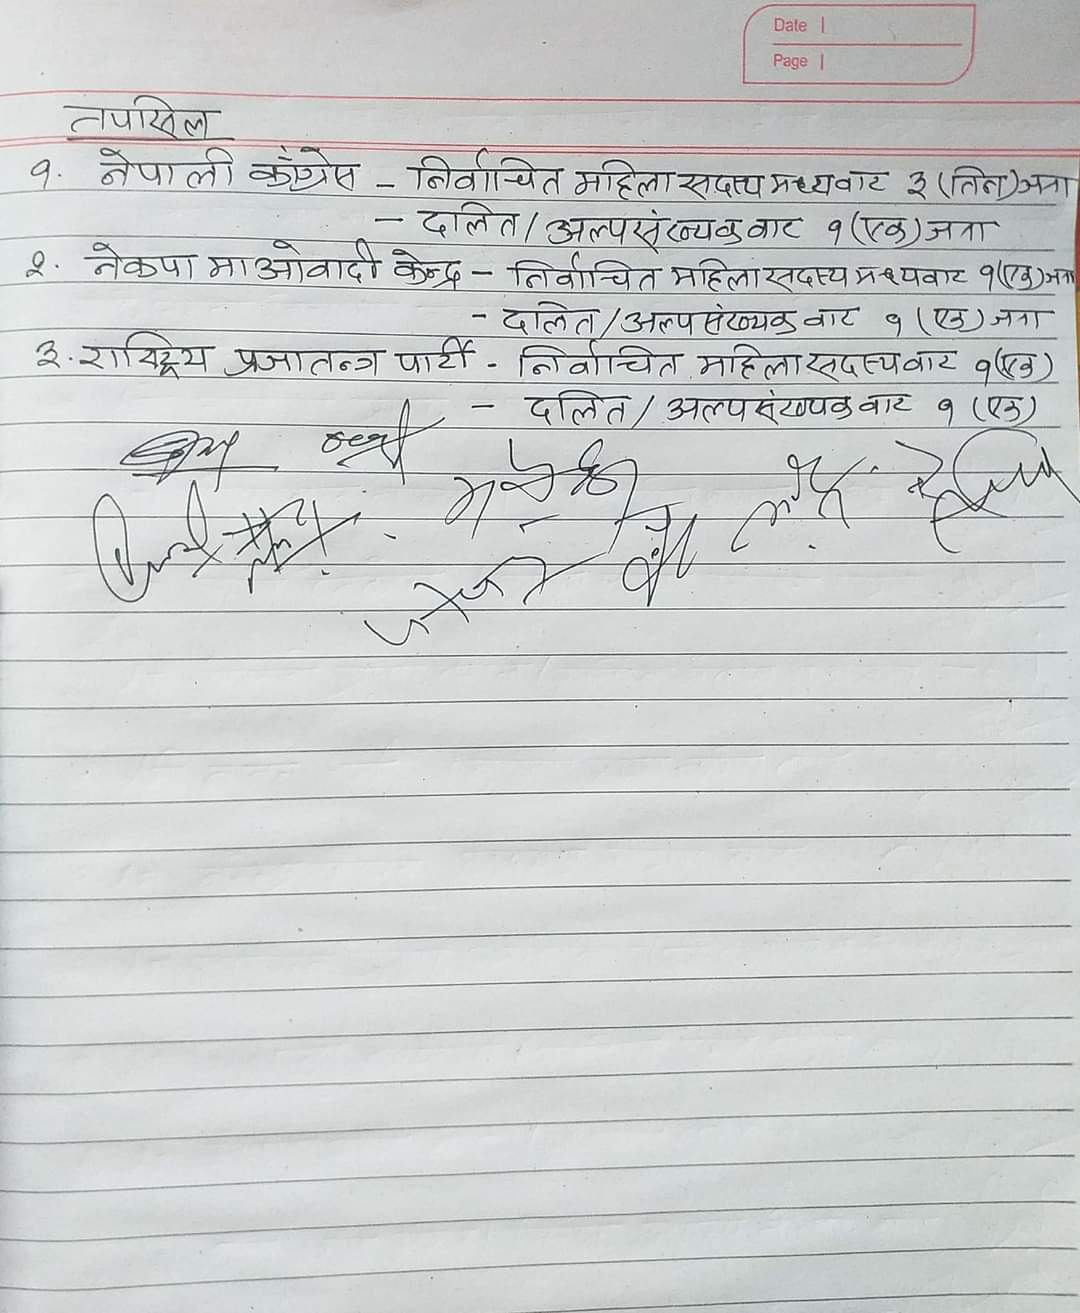 Date |
Page |
तपसिल
१. नेपाली काँग्रेस - निर्वाचित महिला सदस्य मध्यबाट ३ (तिन) जना
- दलित / अल्पसंख्यकबाट १ (एक) जना
२. नेकपा माओवादी केन्द्र - निर्वाचित महिला सदस्य मध्यबाट १ (एक) जना
- दलित / अल्पसंख्यकबाट १ (एक) जना
३. राष्ट्रिय प्रजातन्त्र पार्टी - निर्वाचित महिला सदस्यबाट १ (एक)
- दलित / अल्पसंख्यकबाट १ (एक)